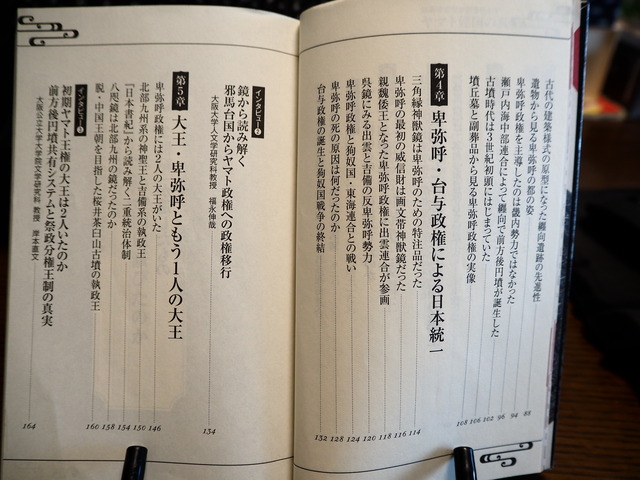 古代の建築様式の原型になった纒向遺跡の先進性 88
遺物から見る卑弥呼の都の姿 94
卑弥呼政権を主導したのは畿内勢力ではなかった 96
瀬戸内海中部連合によって纒向で前方後円墳が誕生した 102
古墳時代は3世紀初頭にはじまっていた 106
墳丘墓と副葬品から見る卑弥呼政権の実像 108
第4章 卑弥呼・台与政権による日本統一
三角縁神獣鏡は卑弥呼のための特注品だった 114
卑弥呼の最初の威信財は画文帯神獣鏡だった 116
親魏倭王となった卑弥呼政権に出雲連合が参画 118
呉鏡にみる出雲と吉備の反卑弥呼勢力 120
卑弥呼政権と狗奴国・東海連合との戦い 124
卑弥呼の死の原因は何だったのか 128
台与政権の誕生と狗奴国戦争の終結 132
インタビュー2
鏡から読み解く
邪馬台国からヤマト政権への政権移行 134
大阪大学人文学研究科教授 福永伸哉
第5章 大王・卑弥呼ともう1人の大王
卑弥呼政権には2人の大王がいた 146
北部九州系の神聖王と吉備系の執政王 150
『日本書紀』から読み解く二重統治体制 154
八咫鏡は北部九州の鏡だったのか 158
脱・中国王朝を目指した桜井茶臼山古墳の執政王 160
インタビュー3
初期ヤマト王権の大王は2人いたのか
前方後円墳共有システムと祭政分権王制の真実 164
大阪公立大学大学院文学研究科 教授 岸本直文